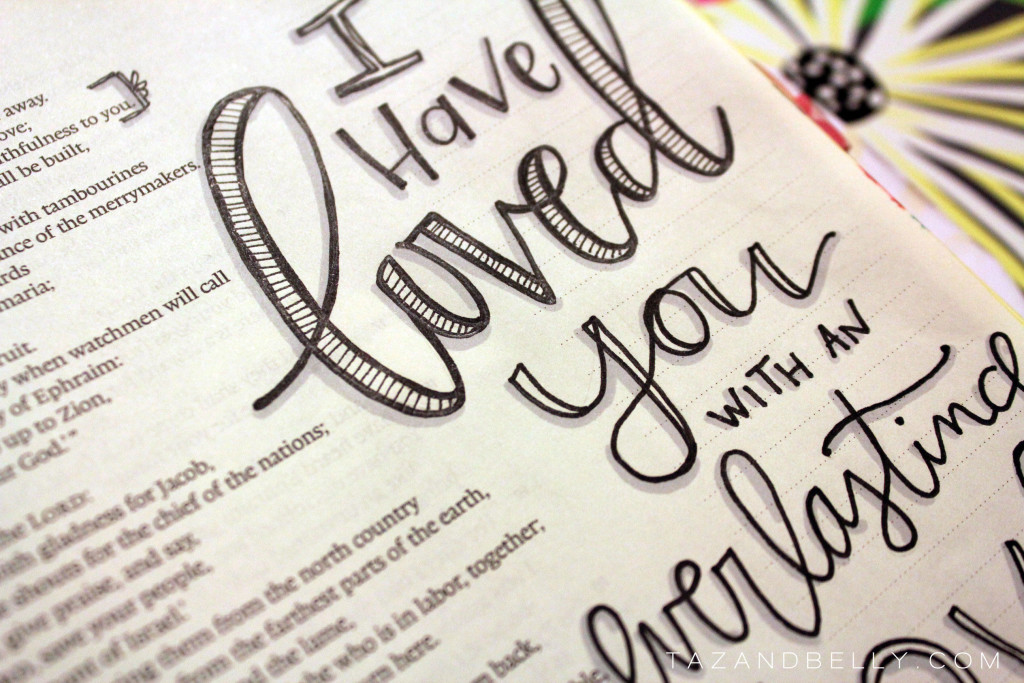 away.
ove;
ithfulness to you.
all be built,
with tambourines
ance of the merrymakers.
ards
maria;
ruit.
y when watchmen will call
y of Ephraim:
up to Zion,
God.'"
LORD:
gladness for Jacob,
for the chief of the nations;
give praise, and say,
your people,
of Israel.'
them from the north country
the farthest parts of the earth,
the lame,
who is in labor, together;
here.
back,
I
Have
loved
you
WITH AN
everlasting
TAZANDBELLY.COM